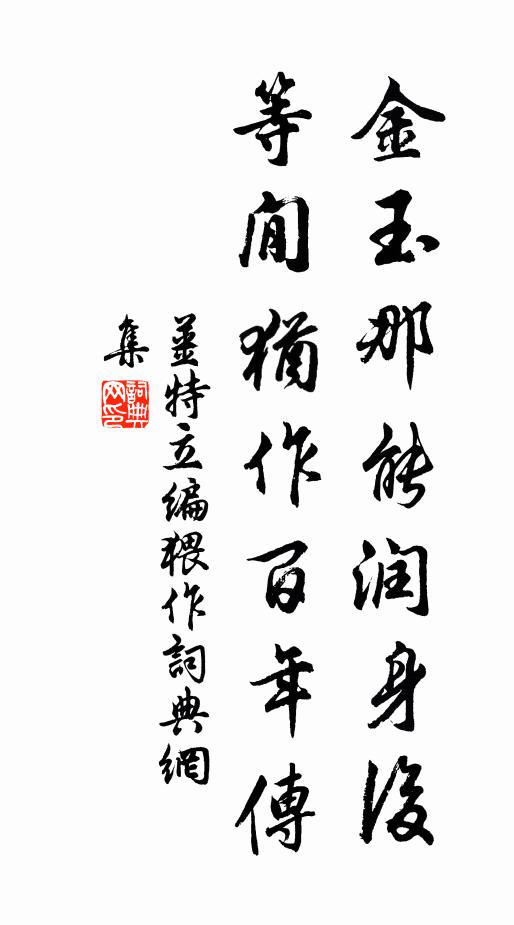 金玉那能润身後
等閒猶作百年傳
姜特立編猥作詞典網
集
詞典
网印